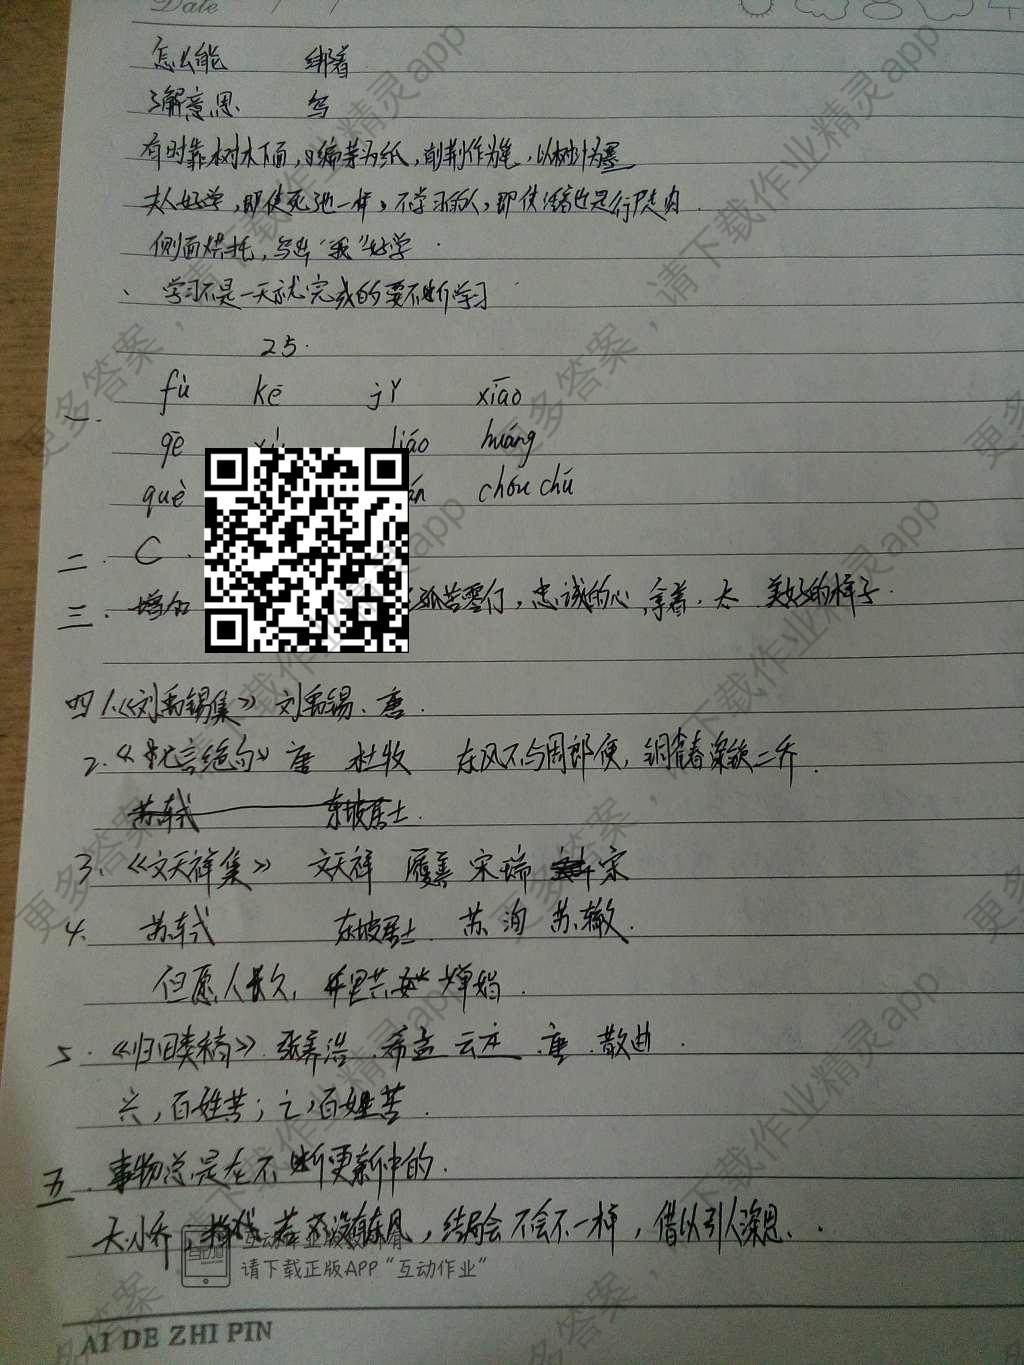 Date / /
怎么能 绑着
了解意思 写
有时靠树木下面,编茅为纸,削荆作为笔,以树汁为墨
夫人好学,即使死也一样,不学习的人,即使活着也是行尸走肉.
侧面烘托,写出"我"好学.
、学习不是一天就完成的要不断学习
25.
fù kē jǐ xiāo
一. gē liáo huáng
què chóu chú
二. C.
三. 增加 孤苦零仃,忠诚的心,拿着.太 美好的样子.
四1.《刘禹锡集》 刘禹锡、唐.
2.《七言绝句》 唐 杜牧 东风不与周郎便,铜雀春深锁二乔.
苏轼 东坡居士.
3.《文天祥集》 文天祥 履善 宋瑞 宋
4. 苏轼 东坡居士. 苏洵 苏辙.
但愿人长久,千里共 婵娟.
5.《归田类稿》.张养浩.希孟 云庄.唐.散曲.
兴,百姓苦;亡,百姓苦.
五.事物总是在不断更新中的.
大小乔, 若 没有东风,结局会不会不一样,借以引人深思.
请下载正版APP"互动作业"
AI DE ZHI PIN
更多答案,请下载作业精灵app